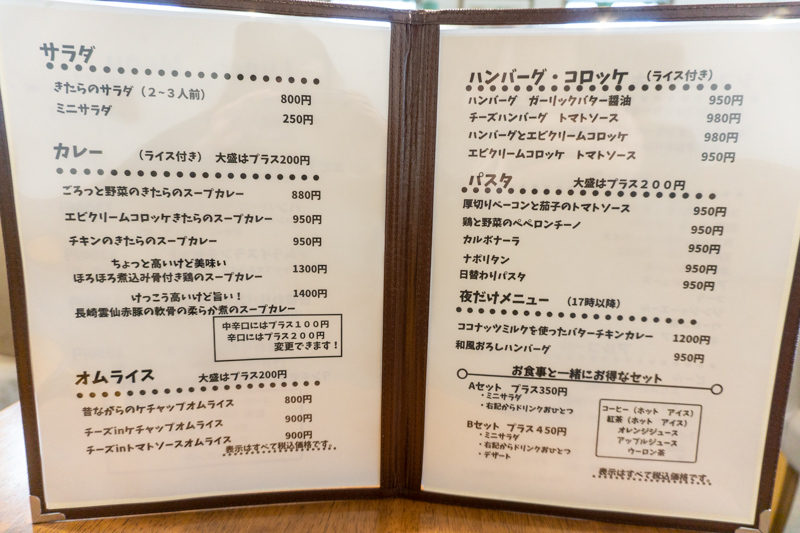 サラダ
きたらのサラダ（２~３人前） 800円
ミニサラダ 250円
カレー （ライス付き） 大盛はプラス200円
ごろっと野菜のきたらのスープカレー 880円
エビクリームコロッケきたらのスープカレー 950円
チキンのきたらのスープカレー 950円
ちょっと高いけど美味い
ほろほろ煮込み骨付き鶏のスープカレー 1300円
けっこう高いけど旨い！ 1400円
長崎雲仙赤豚の軟骨の柔らか煮のスープカレー
中辛口にはプラス１００円
辛口にはプラス２００円
変更できます！
オムライス 大盛はプラス200円
昔ながらのケチャップオムライス 800円
チーズinケチャップオムライス 900円
チーズinトマトソースオムライス 900円
表示はすべて税込価格です。
ハンバーグ・コロッケ （ライス付き）
ハンバーグ ガーリックバター醤油 950円
チーズハンバーグ トマトソース 980円
ハンバーグとエビクリームコロッケ 980円
エビクリームコロッケ トマトソース 950円
パスタ 大盛はプラス２００円
厚切りベーコンと茄子のトマトソース 950円
鶏と野菜のペペロンチーノ 950円
カルボナーラ 950円
ナポリタン 950円
日替わりパスタ 950円
夜だけメニュー （17時以降）
ココナッツミルクを使ったバターチキンカレー 1200円
和風おろしハンバーグ 950円
お食事と一緒にお得なセット
Aセット プラス350円
・ミニサラダ
・右記からドリンクおひとつ
Bセット プラス４５０円
・ミニサラダ
・右記からドリンクおひとつ
・デザート
コーヒー（ホット アイス）
紅茶（ホット アイス）
オレンジジュース
アップルジュース
ウーロン茶
表示はすべて税込価格です。